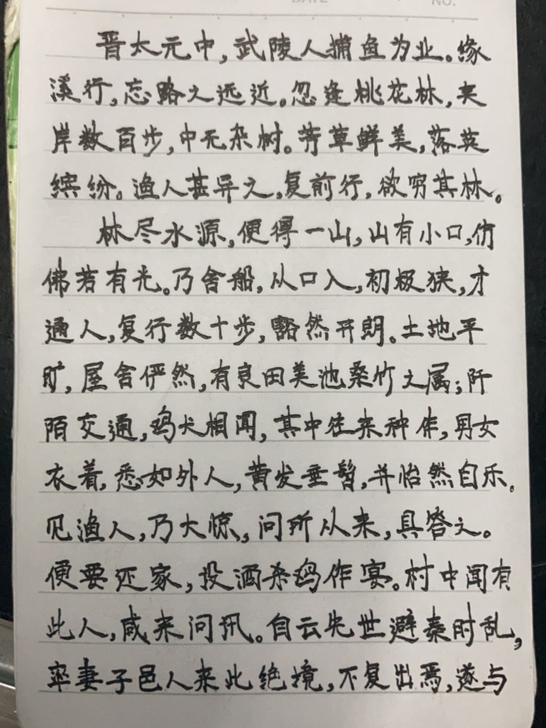 DATE NO.
晋太元中,武陵人捕鱼为业。缘
溪行,忘路之远近。忽逢桃花林,夹
岸数百步,中无杂树。芳草鲜美,落英
缤纷。渔人甚异之,复前行,欲穷其林。
林尽水源,便得一山,山有小口,仿
佛若有光。乃舍船,从口入,初极狭,才
通人,复行数十步,豁然开朗。土地平
旷,屋舍俨然,有良田美池桑竹之属;阡
陌交通,鸡犬相闻,其中往来种作,男女
衣着,悉如外人,黄发垂髫,并怡然自乐。
见渔人,乃大惊,问所从来,具答之。
便要还家,设酒杀鸡作宴。村中闻有
此人,咸来问讯。自云先世避秦时乱,
率妻子邑人来此绝境,不复出焉,遂与